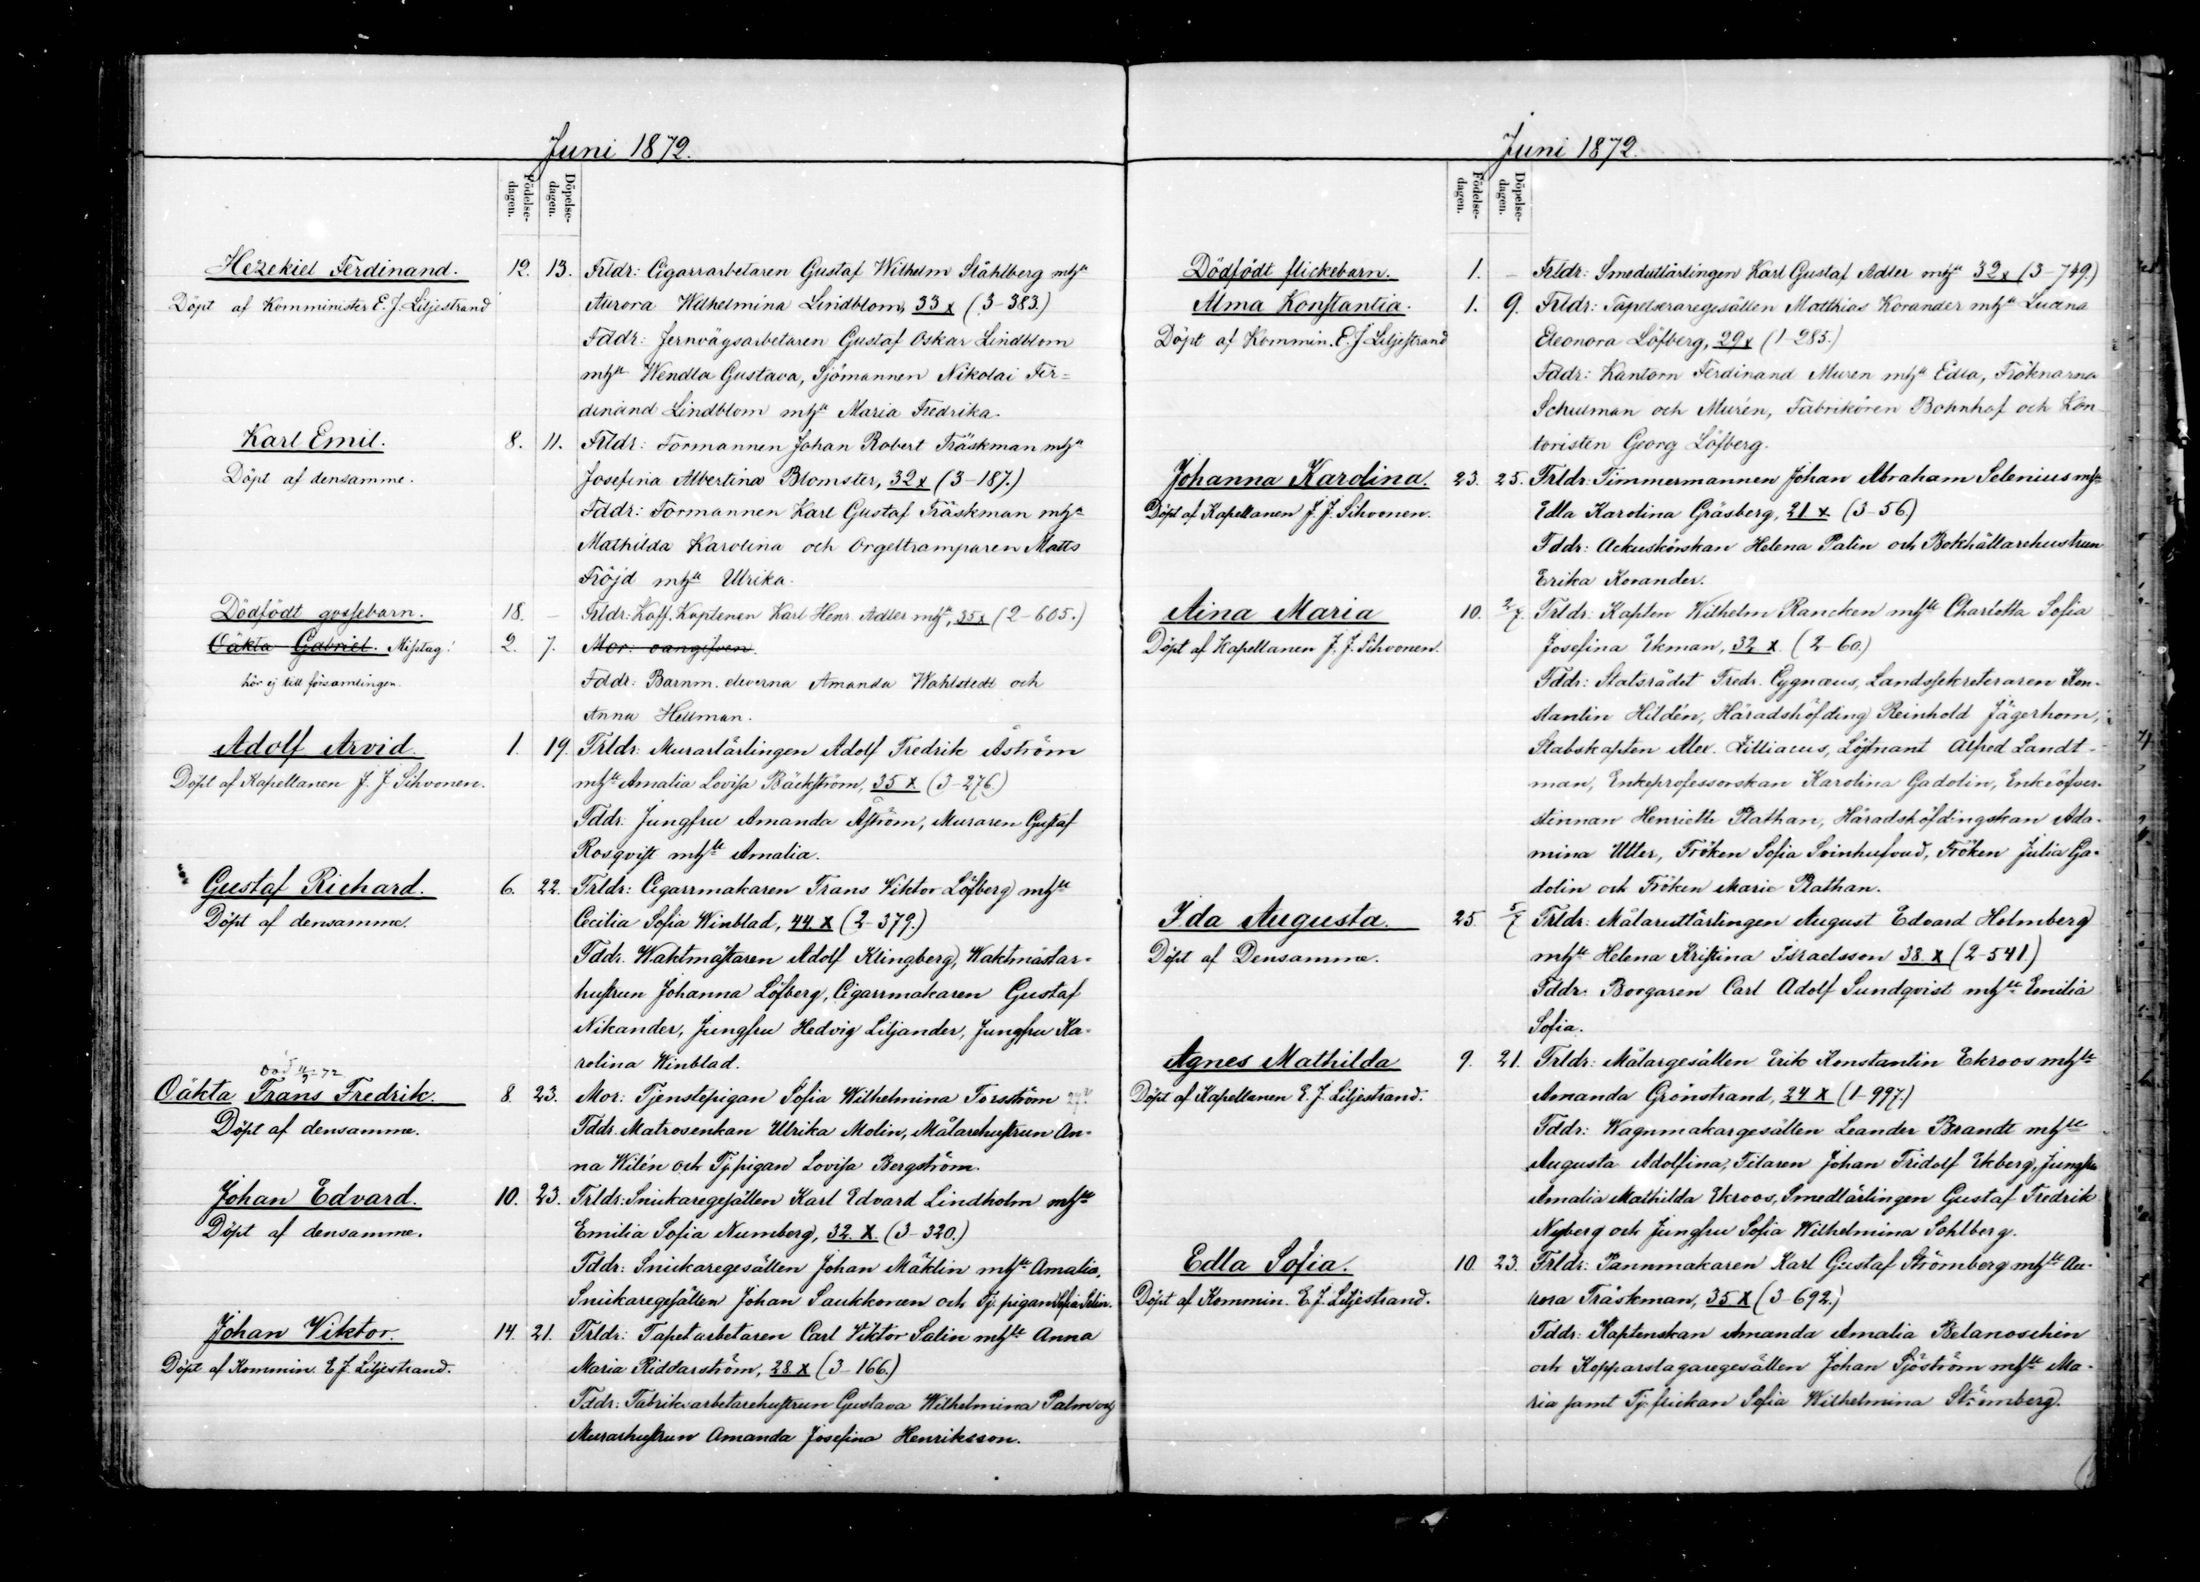 Juni 1872.
Födelse-dagen.
Döpelse-dagen.
Hezekiel Ferdinand. 12. 13. Frldr: Cigarrarbetaren Gustaf Wilhelm Ståhlberg mhu
Döpt af Komminister E. J. Liljestrand Aurora Wilhelmina Lindblom, 33 x (3-383.)
Fddr: Jernvägsarbetaren Gustaf Oskar Lindblom
mhu Wendla Gustava, Sjömannen Nikolai Fer=
dinand Lindblom mhu Maria Fredrika.
Karl Emil. 8. 11. Frldr: Formannen Johan Robert Träskman mhu
Döpt af densamme. Josefina Albertina Blomster, 32 x (3-187.)
Fddr: Formannen Karl Gustaf Träskman mhu
Mathilda Karolina och Orgeltramparen Matts
Fröjd mhu Ulrika.
Dödfödt gossebarn. 18. – Frldr: Koff. Kaptenen Karl Henr. Adler mhu, 35 x (2-605.)
Oäkta Gabriel. Misstag! 2. 7. Mor: oangifven.
hör ej till församlingen. Fddr: Barnm. eleverna Amanda Wahlstedt och
Anna Hellman.
Adolf Arvid. 1. 19. Frldr: Murarlärlingen Adolf Fredrik Åström
Döpt af Kapellanen J. J. Sihvonen. mhu Amalia Lovisa Bäckström, 35 x (3-276.)
Fddr: Jungfru Amanda Åström, Muraren Gustaf
Rosqvist mhu Amalia.
Gustaf Richard. 6. 22. Frldr: Cigarrmakaren Frans Viktor Löfberg mhu
Döpt af densamme. Cecilia Sofia Winblad, 44. x (2-379.)
Fddr. Waktmästaren Adolf Klingberg, Waktmästar-
hustrun Johanna Löfberg, Cigarrmakaren Gustaf
Nikander, Jungfru Hedvig Liljander, Jungfru Ka-
rolina Winblad.
Oäkta Frans Fredrik. 8. 23. Mor: Tjenstepigan Sofia Wilhelmina Forsström
Döpt af densamme. Fddr. Matrosenkan Ulrika Molin, Målarehustrun An-
na Wilén och Tj. pigan Lovisa Bergström.
Johan Edvard. 10. 23. Frldr: Snickaregesällen Karl Edvard Lindholm mhu
Döpt af densamme. Emilia Sofia Numberg, 32. x. (3-320.)
Fddr: Snickaregesällen Johan Mäklin mhu Amalia,
Snickaregesällen Johan Saukkonen och Tj. pigan Sofia Selin.
Johan Viktor. 14. 21. Frldr: Tapetarbetaren Carl Viktor Salin mhu Anna
Döpt af Kommin. E. J. Liljestrand. Maria Riddarström, 28. x (3-166.)
Fddr: Fabriksarbetarehustrun Gustava Wilhelmina Palm och
Murarhustrun Amanda Josefina Henriksson.
Juni 1872.
Födelse-dagen.
Döpelse-dagen.
Dödfödt flickebarn. 1. – Frldr: Smedslärlingen Karl Gustaf Adler mhu 32 x (3-749)
Alma Konstantia. 1. 9. Frldr: Tapetseraregesällen Matthias Korander mhu Lucina
Döpt af Kommin. E. J. Liljestrand Eleonora Löfberg, 29 x (1-285.)
Fddr: Kantorn Ferdinand Muren mhu Edla, Fröknarna
Schulman och Murén, Fabrikören Bohnhof och Kon-
toristen Georg Löfberg.
Johanna Karolina. 23. 25. Frldr: Timmermannen Johan Abraham Selenius mhu
Döpt af Kapellanen J. J. Sihvonen. Edla Karolina Gräsberg, 21 x (3-56.)
Fddr: Ackuskörskan Helena Palin och Bokhållarehustrun
Erika Korander.
Aina Maria 10. 2/7. Frldr: Kapten Wilhelm Rancken mhu Charlotta Sofia
Döpt af Kapellanen J. J. Sihvonen. Josefina Ekman, 32 x. (2-60.)
Fddr: Statsrådet Fredr. Cygnæus, Landssekreteraren Kon-
stantin Hildén, Häradshöfding Reinhold Jägerhorn,
Stabskapten Alex. Lilliacus, Löjtnant Alfred Landt-
man, Enkeprofessorskan Karolina Gadolin, Enkeöfver-
stinnan Henriette Plathan, Häradshöfdingskan Ada-
mina Utter, Fröken Sofia Svinhufvud, Fröken Julia Ga-
dolin och Fröken Marie Plathan.
Ida Augusta. 25. 5/7 Frldr: Målarelärlingen August Edvard Holmberg
Döpt af Densamme. mhu Helena Kristina Israelsson 38. x (2-541)
Fddr. Borgaren Carl Adolf Sundqvist mhu Emilia
Sofia.
Agnes Mathilda 9. 21. Frldr: Målargesällen Erik Konstantin Ekroos mhu
Döpt af Kapellanen E. J. Liljestrand. Amanda Grönstrand, 24 x (1-997.)
Fddr: Wagnmakargesällen Leander Brandt mhu
Augusta Adolfina, Filaren Johan Fridolf Ekberg, Jungfru
Amalia Mathilda Ekroos, Smedlärlingen Gustaf Fredrik
Nyberg och Jungfru Sofia Wilhelmina Sohlberg.
Edla Sofia. 10. 23. Frldr: Pannmakaren Karl Gustaf Strömberg mhu Au-
Döpt af Kommin. E. J. Liljestrand. rora Träskman, 35 x (3-692.)
Fddr: Kaptenskan Amanda Amalia Belanoschin
och Kopparslagaregesällen Johan Sjöström mhu Ma-
ria samt Tj. flickan Sofia Wilhelmina Strömberg.